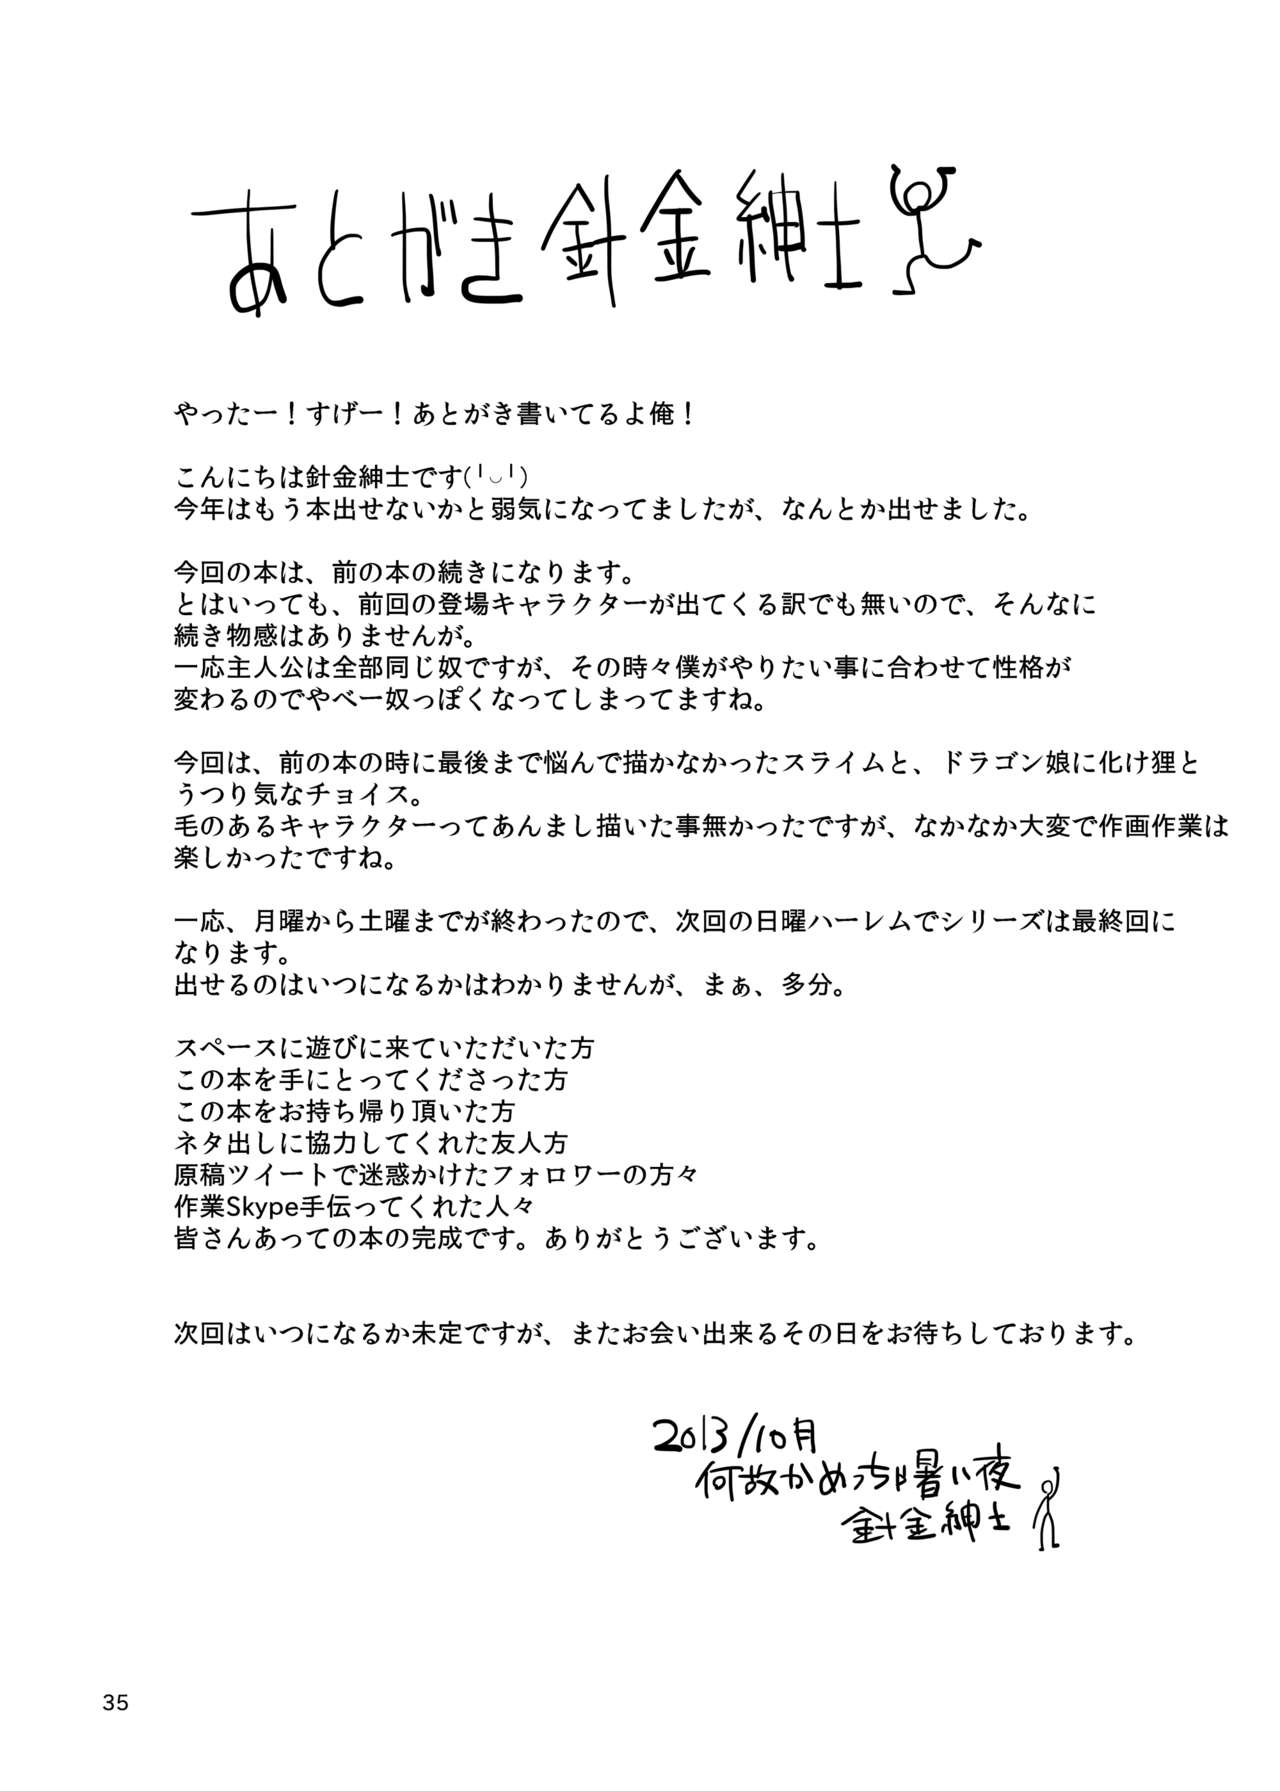 あとがき 針金紳士
やったー！すげー！あとがき書いてるよ俺！
こんにちは針金紳士です(╵◡╵)
今年はもう本出せないかと弱気になってましたが、なんとか出せました。
今回の本は、前の本の続きになります。
とはいっても、前回の登場キャラクターが出てくる訳でも無いので、そんなに
続き物感はありませんが。
一応主人公は全部同じ奴ですが、その時々僕がやりたい事に合わせて性格が
変わるのでやべー奴っぽくなってしまってますね。
今回は、前の本の時に最後まで悩んで描かなかったスライムと、ドラゴン娘に化け狸と
うつり気なチョイス。
毛のあるキャラクターってあんまし描いた事無かったですが、なかなか大変で作画作業は
楽しかったですね。
一応、月曜から土曜までが終わったので、次回の日曜ハーレムでシリーズは最終回に
なります。
出せるのはいつになるかはわかりませんが、まぁ、多分。
スペースに遊びに来ていただいた方
この本を手にとってくださった方
この本をお持ち帰り頂いた方
ネタ出しに協力してくれた友人方
原稿ツイートで迷惑かけたフォロワーの方々
作業Skype手伝ってくれた人々
皆さんあっての本の完成です。ありがとうございます。
次回はいつになるか未定ですが、またお会い出来るその日をお待ちしております。
2013/10月
何故かめっちゃ暑い夜
針金紳士
35